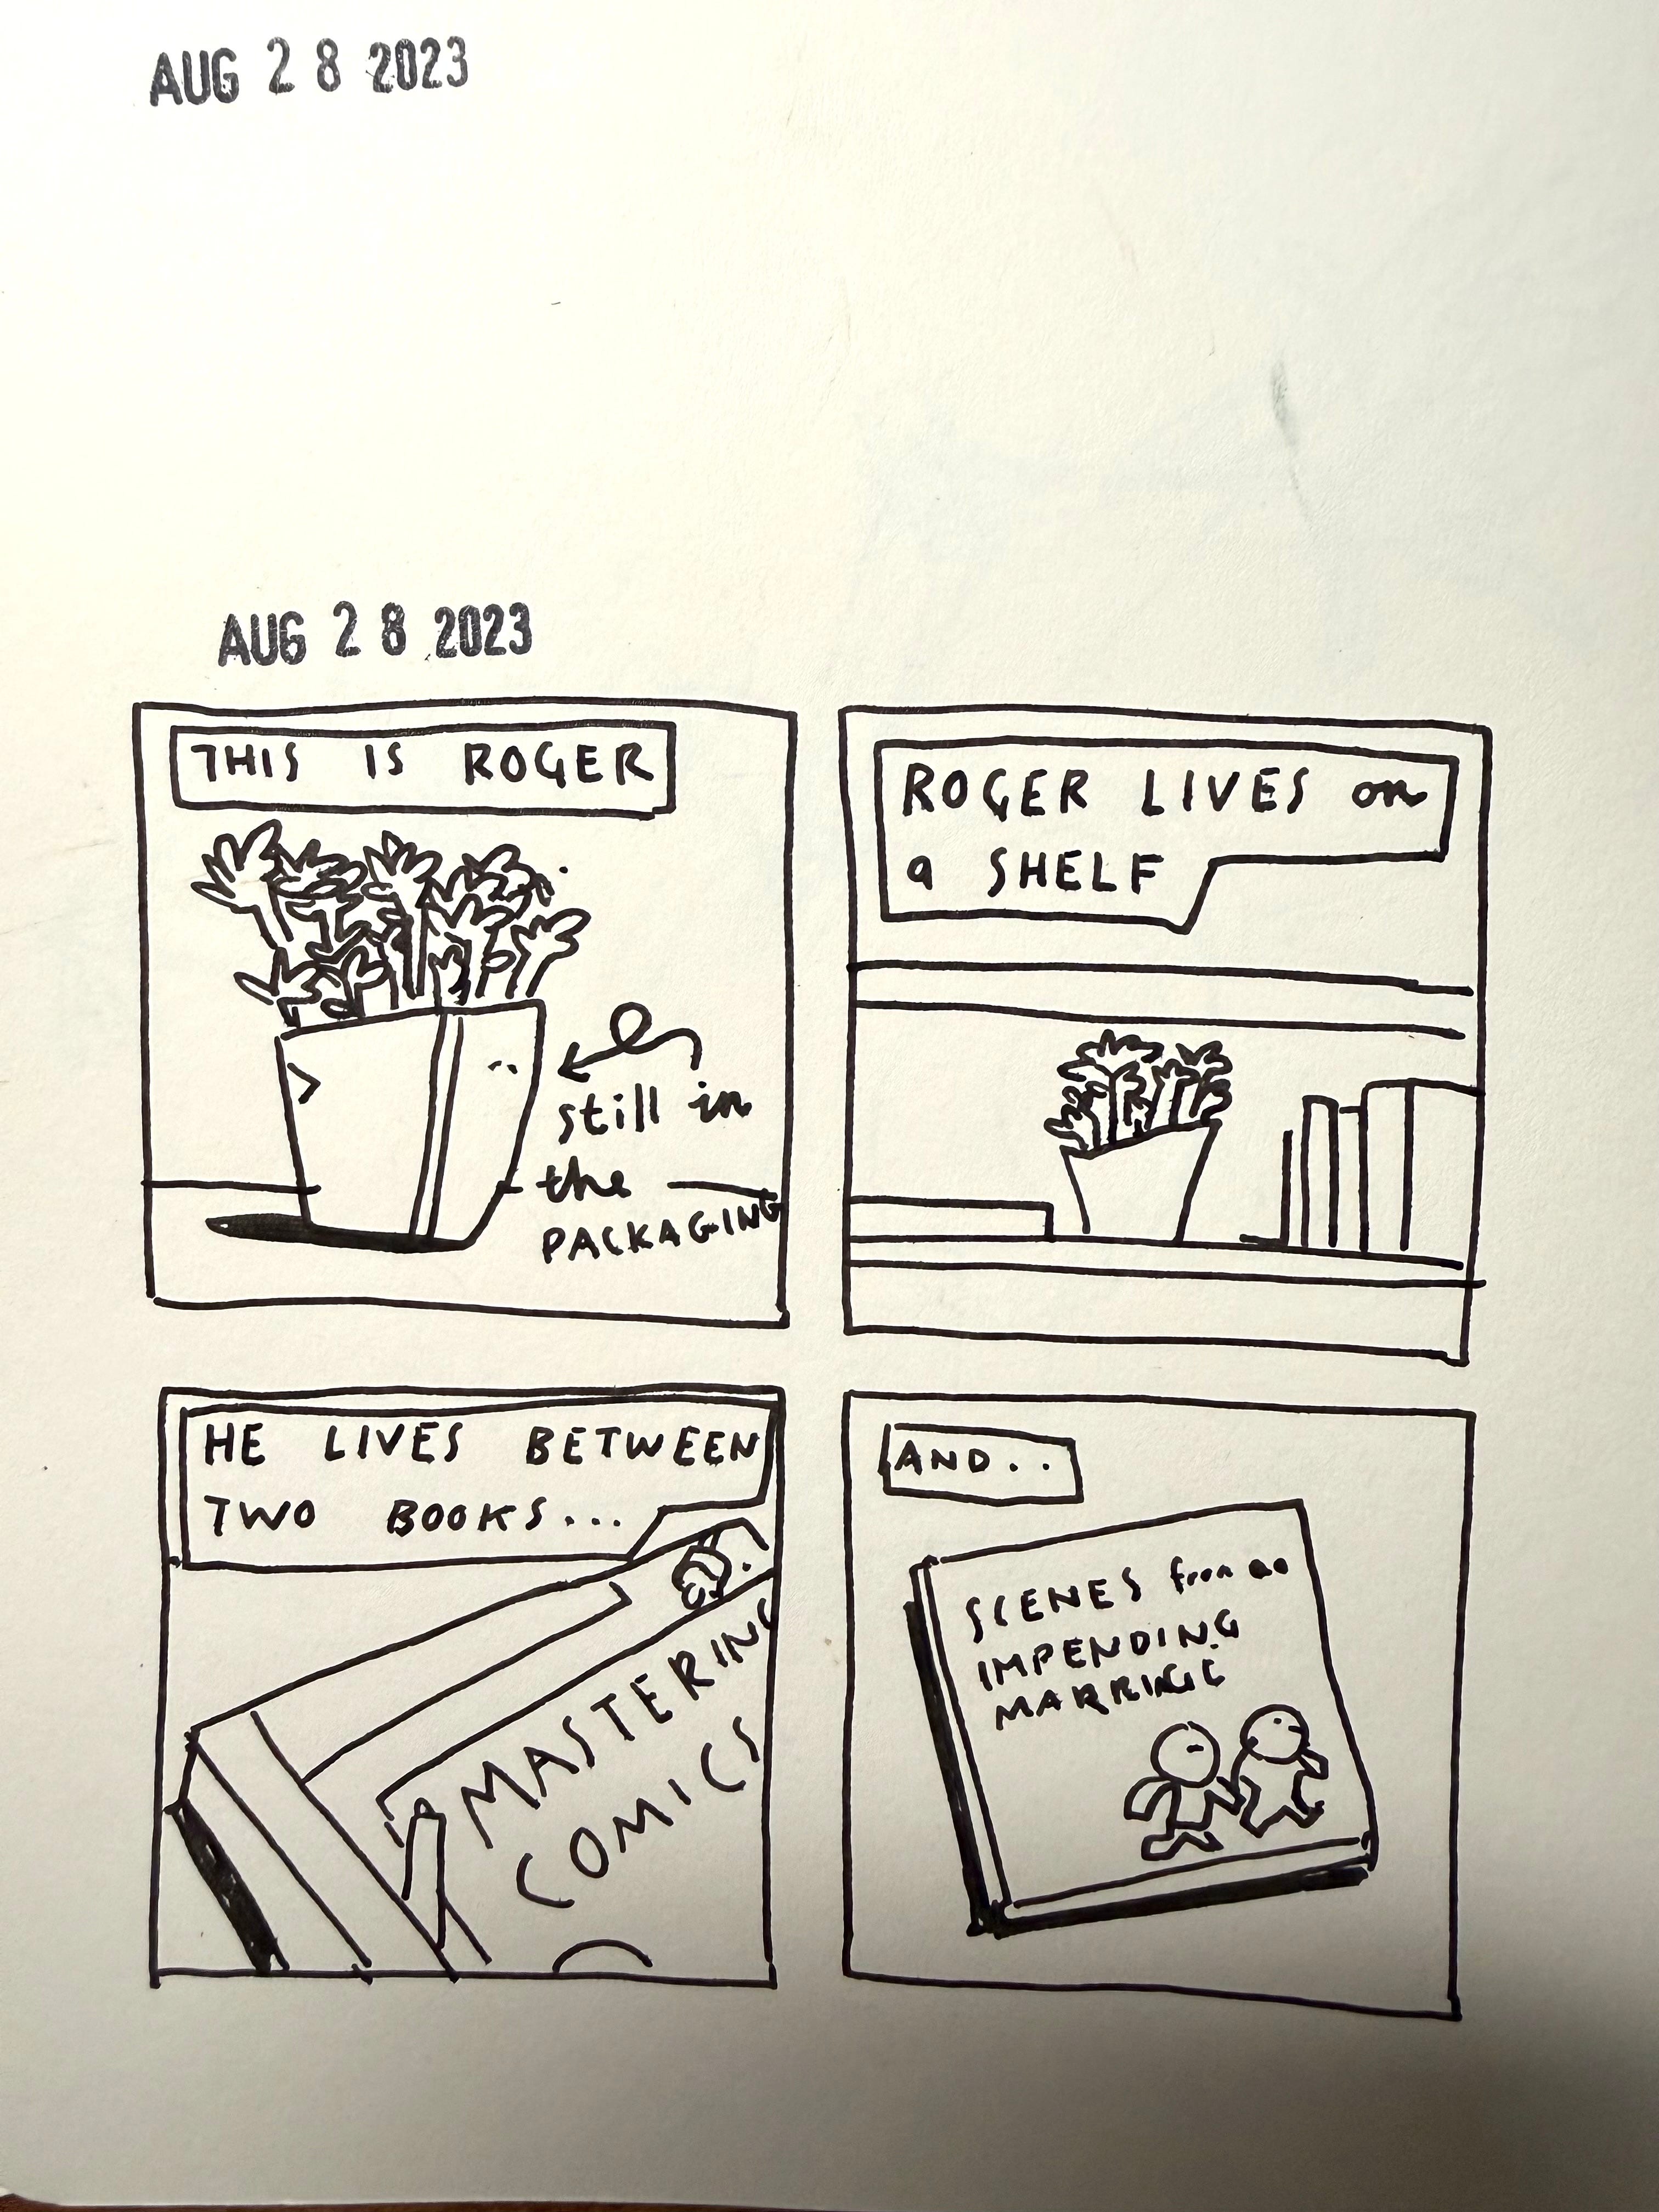 AUG 28 2023
AUG 28 2023
THIS IS ROGER
still in
the
PACKAGING
ROGER LIVES on
a SHELF
HE LIVES BETWEEN
TWO BOOKS...
MASTERING
COMICS
AND..
SCENES from an
IMPENDING
MARRIAGE